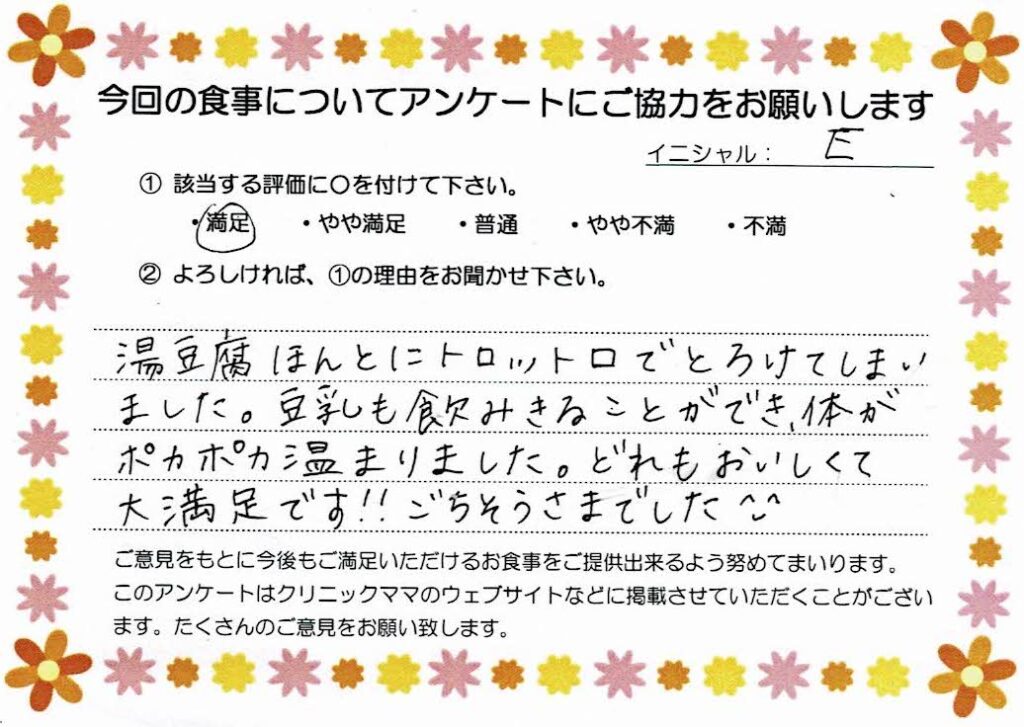 今回の食事についてアンケートにご協力をお願いします
イニシャル： E
① 該当する評価に〇を付けて下さい。
・満足 ・やや満足 ・普通 ・やや不満 ・不満
② よろしければ、①の理由をお聞かせ下さい。
湯豆腐ほんとにトロットロでとろけてしまい
ました。豆乳も飲みきることができ、体が
ポカポカ温まりました。どれもおいしくて
大満足です!! ごちそうさまでした^^
ご意見をもとに今後もご満足いただけるお食事をご提供出来るよう努めてまいります。
このアンケートはクリニックママのウェブサイトなどに掲載させていただくことがござい
ます。たくさんのご意見をお願い致します。